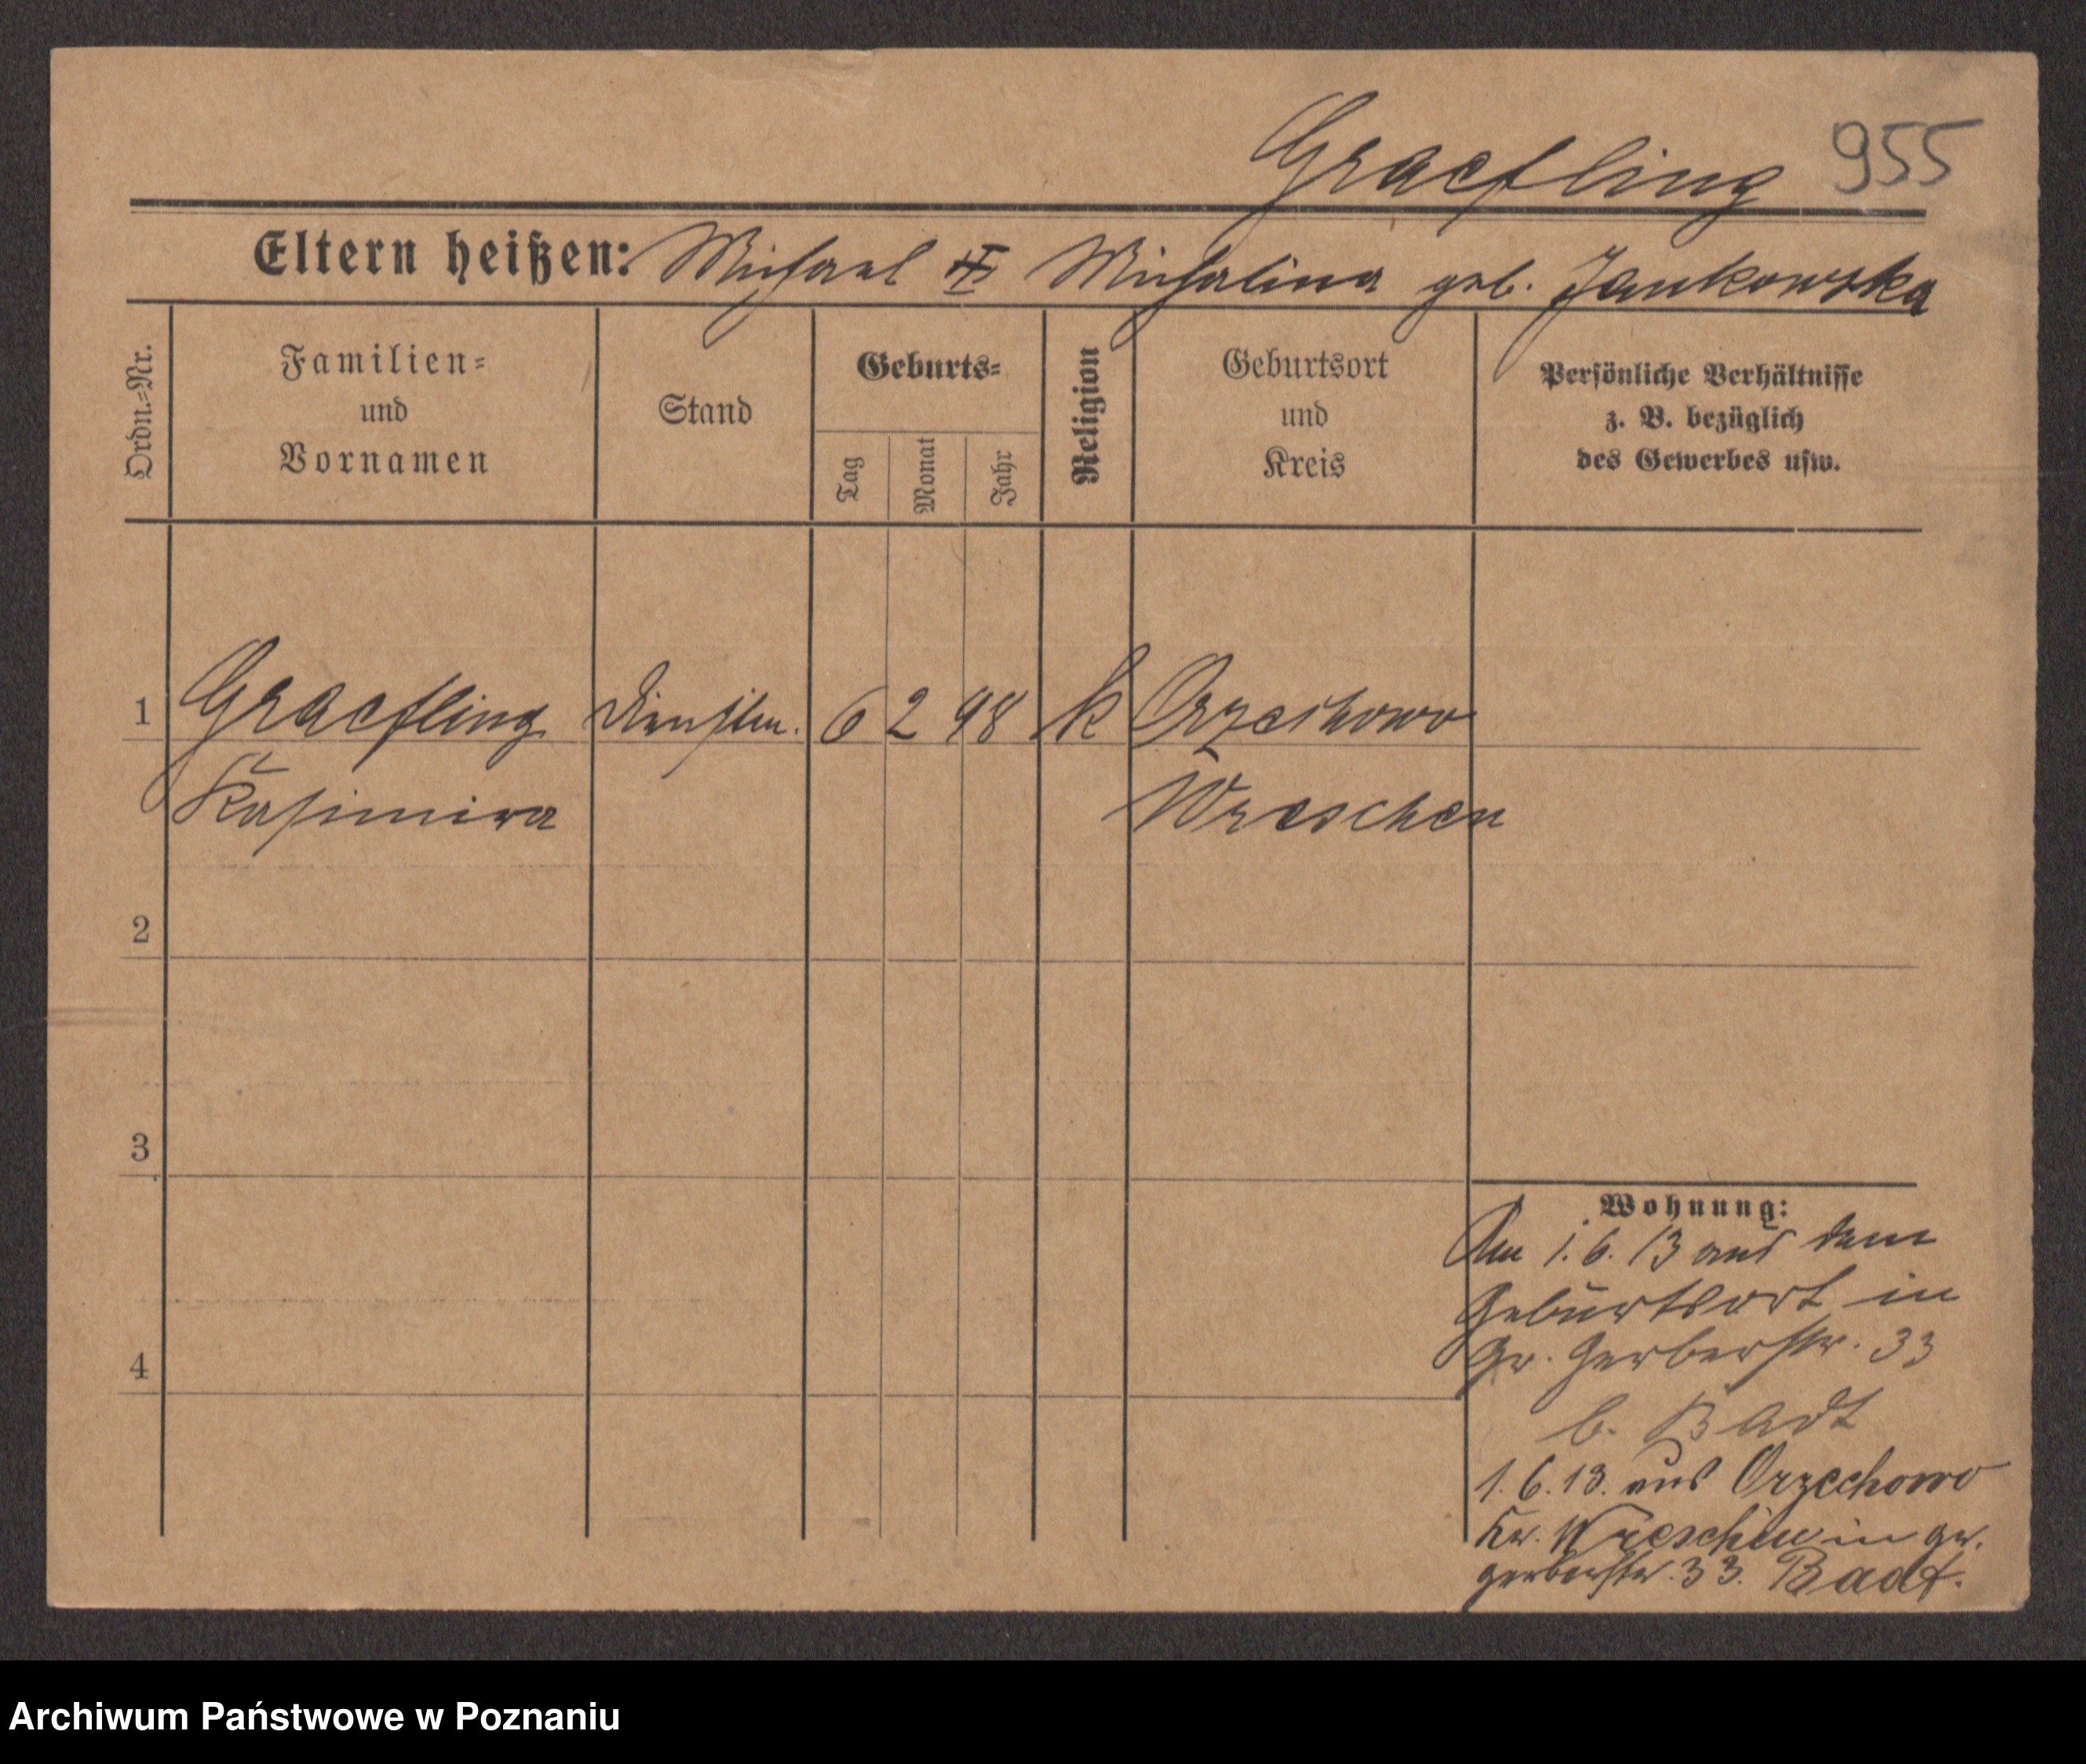 Graefling 955
Eltern heißen: Michael Michalina geb. Jankowska
Ordn.-Nr.
Familien-
und
Vornamen
Stand
Geburts-
Tag
Monat
Jahr
Religion
Geburtsort
und
Kreis
Persönliche Verhältnisse
z. B. bezüglich
des Gewerbes usw.
1 Graefling Dienstm. 6 2 98 k Orzechowo
Kasimira Wreschen
2
3
4
Wohnung:
Am 1.6.13 aus dem
Geburtsort in
Gr. Gerberstr. 33
b. Badt
1.6.13. aus Orzechowo
Kr. Wreschen in Gr.
Gerberstr. 33. Badt.
Archiwum Państwowe w Poznaniu